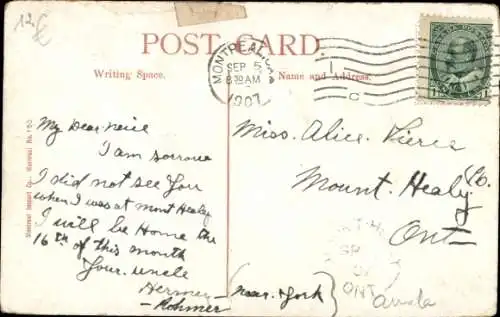 12.
POST CARD
MONTREAL CAN.
SEP 5
8.30 AM
1907
Writing Space.
Name and Address.
My Dear neice
I am sorrow
I did not see You
when I was at Mont Healy
I will be Home the
16th of this month
Your uncle
Hermen
Rohmer
Miss. Alice Pierce
Mount. Healy
Ont
(near York)
ONT
Montreal Import Co., Montreal. No. 150